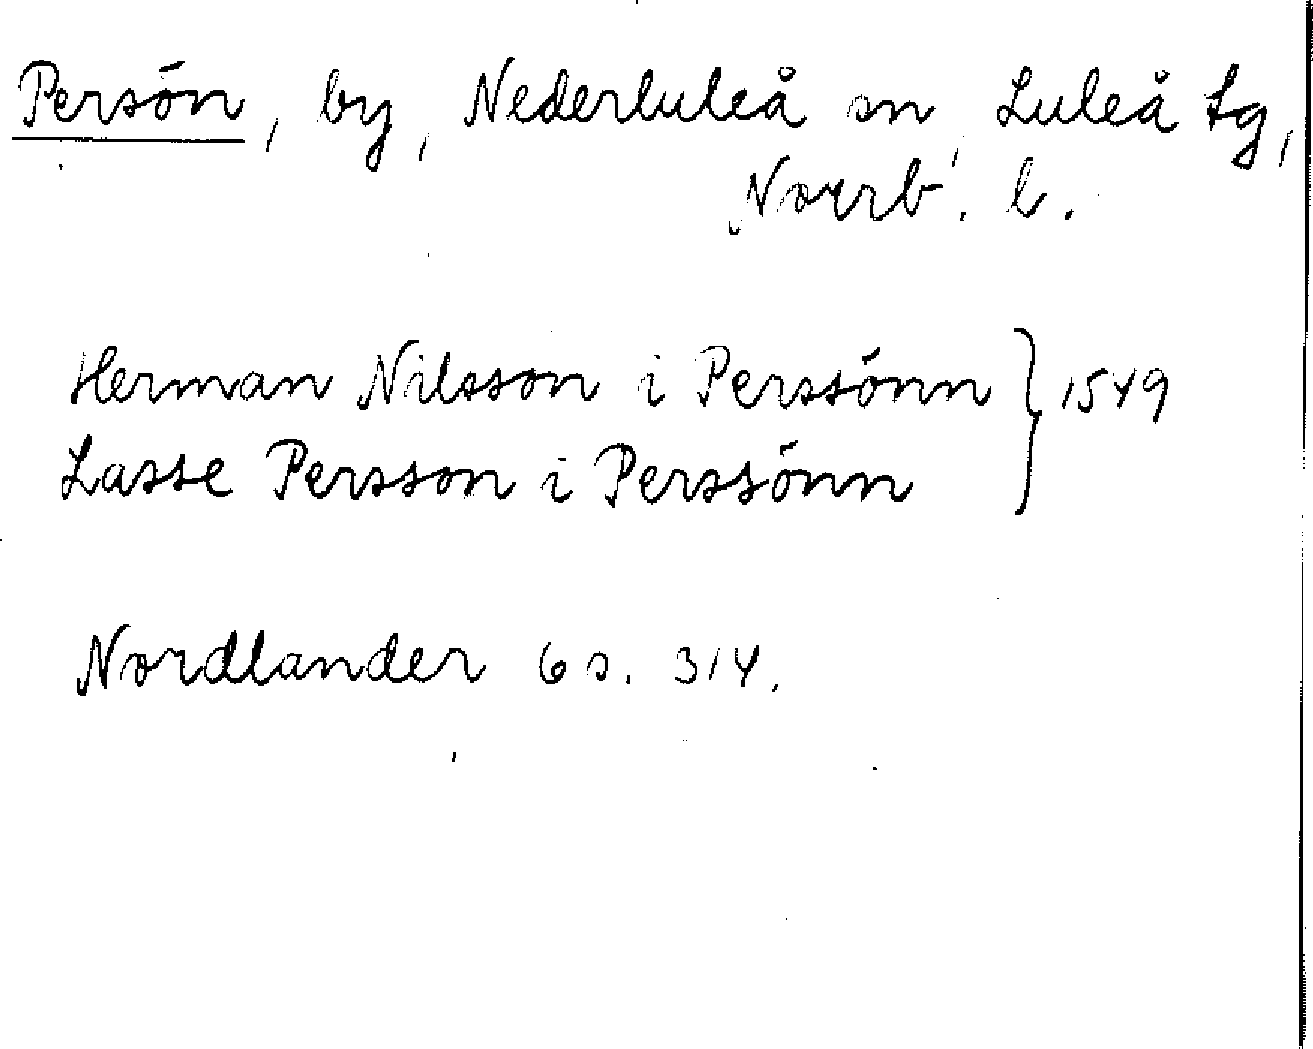 Persön, by, Nederluleå sn, Luleå tg,
Norrb. l.
Herman Nilsson i Perssönn } 1549
Lasse Persson i Perssönn
Nordlander 6 s. 314.